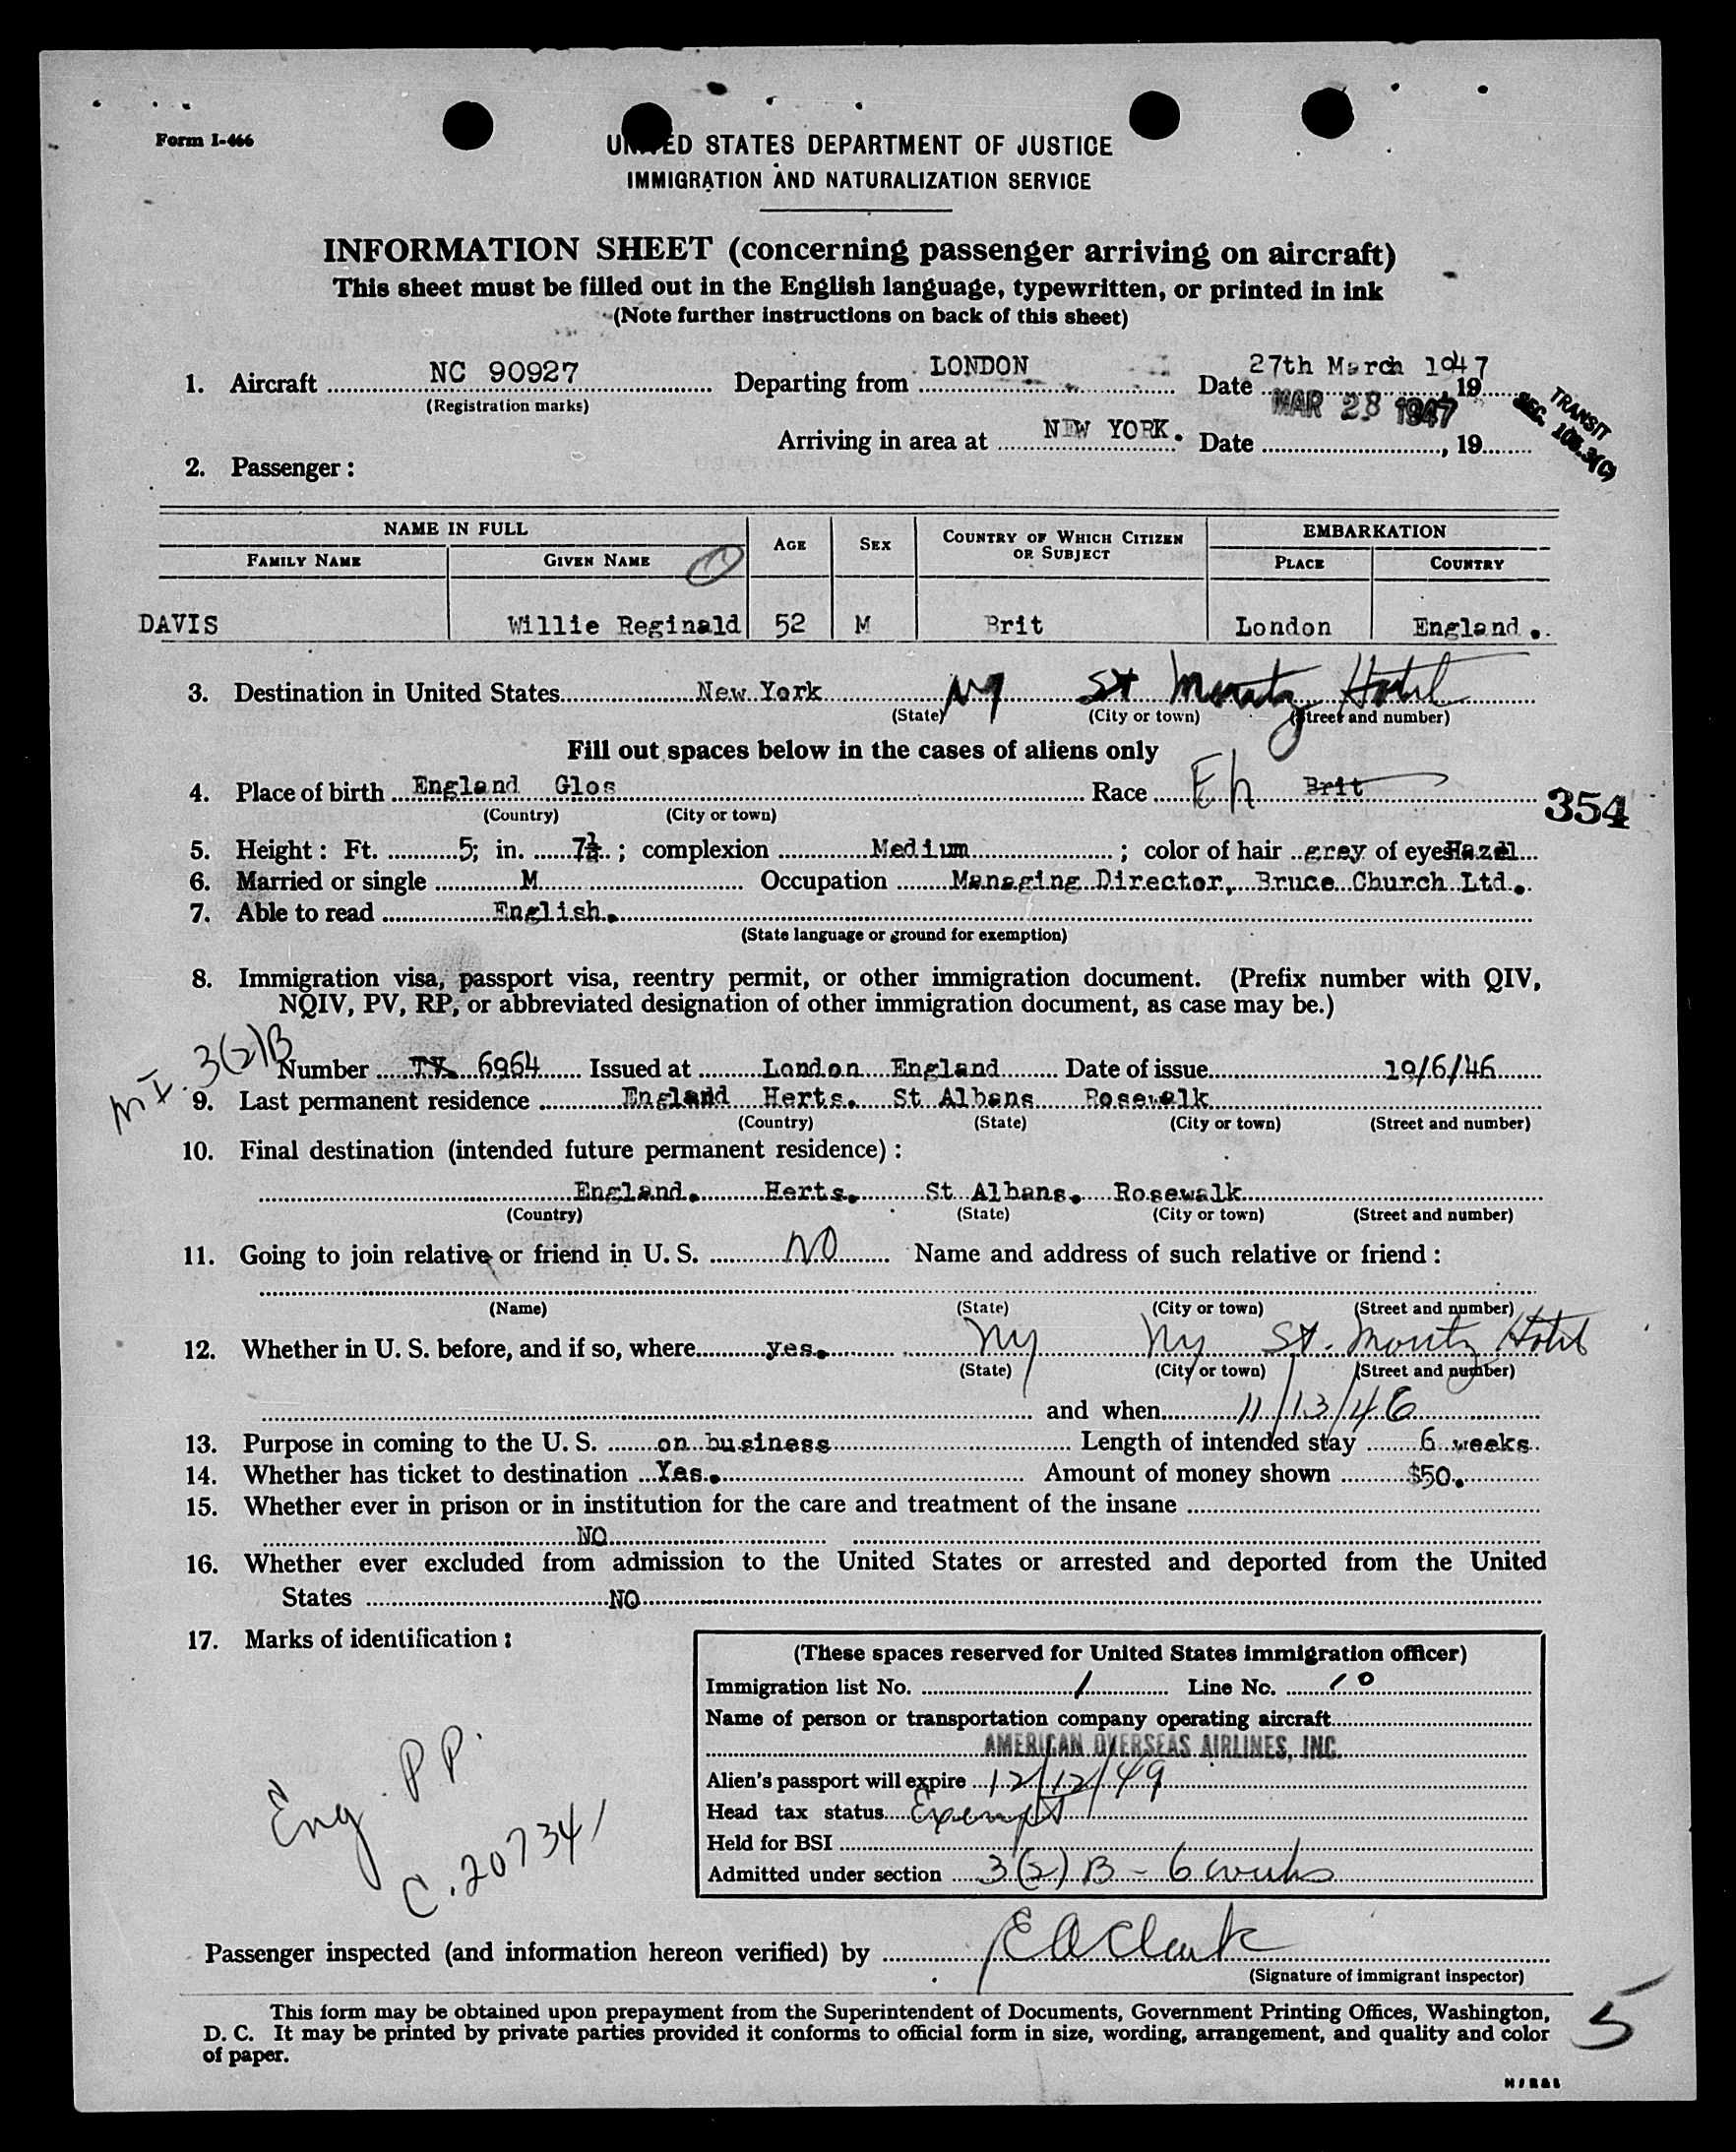 Form I-466
UNITED STATES DEPARTMENT OF JUSTICE
IMMIGRATION AND NATURALIZATION SERVICE
INFORMATION SHEET (concerning passenger arriving on aircraft)
This sheet must be filled out in the English language, typewritten, or printed in ink
(Note further instructions on back of this sheet)
1. Aircraft NC 90927 Departing from LONDON Date 27th March 1947, 19
(Registration marks)
MAR 28 1947
TRANSIT
SEC. 108.3(C)
Arriving in area at NEW YORK. Date , 19
2. Passenger:
NAME IN FULL AGE SEX COUNTRY OF WHICH CITIZEN OR SUBJECT EMBARKATION
FAMILY NAME GIVEN NAME PLACE COUNTRY
DAVIS Willie Reginald 52 M Brit London England.
3. Destination in United States New York NY St Moritz Hotel
(State) (City or town) (Street and number)
Fill out spaces below in the cases of aliens only
4. Place of birth England Glos Race Eh Brit
(Country) (City or town)
354
5. Height: Ft. 5; in. 7½; complexion Medium; color of hair grey of eyes Hazel
6. Married or single M Occupation Managing Director, Bruce Church Ltd.
7. Able to read English.
(State language or ground for exemption)
8. Immigration visa, passport visa, reentry permit, or other immigration document. (Prefix number with QIV,
NQIV, PV, RP, or abbreviated designation of other immigration document, as case may be.)
MI. 3(2)B
Number TX 6964 Issued at London England Date of issue 19/6/46
9. Last permanent residence England Herts. St Albans Rosewalk
(Country) (State) (City or town) (Street and number)
10. Final destination (intended future permanent residence):
England. Herts. St Albans. Rosewalk
(Country) (State) (City or town) (Street and number)
11. Going to join relative or friend in U. S. NO Name and address of such relative or friend:
(Name) (State) (City or town) (Street and number)
12. Whether in U. S. before, and if so, where yes. NY NY St. Moritz Hotel
(State) (City or town) (Street and number)
and when 11/13/46
13. Purpose in coming to the U. S. on business Length of intended stay 6 weeks
14. Whether has ticket to destination Yes. Amount of money shown $50.
15. Whether ever in prison or in institution for the care and treatment of the insane
NO
16. Whether ever excluded from admission to the United States or arrested and deported from the United
States NO
17. Marks of identification:
Eng. PP.
C.207341
(These spaces reserved for United States immigration officer)
Immigration list No. 1 Line No. 10
Name of person or transportation company operating aircraft
AMERICAN OVERSEAS AIRLINES, INC.
Alien's passport will expire 12/12/49
Head tax status Exempt
Held for BSI
Admitted under section 3(2)B - 6 weeks
Passenger inspected (and information hereon verified) by E A Clark
(Signature of immigrant inspector)
This form may be obtained upon prepayment from the Superintendent of Documents, Government Printing Offices, Washington,
D. C. It may be printed by private parties provided it conforms to official form in size, wording, arrangement, and quality and color
of paper.
5